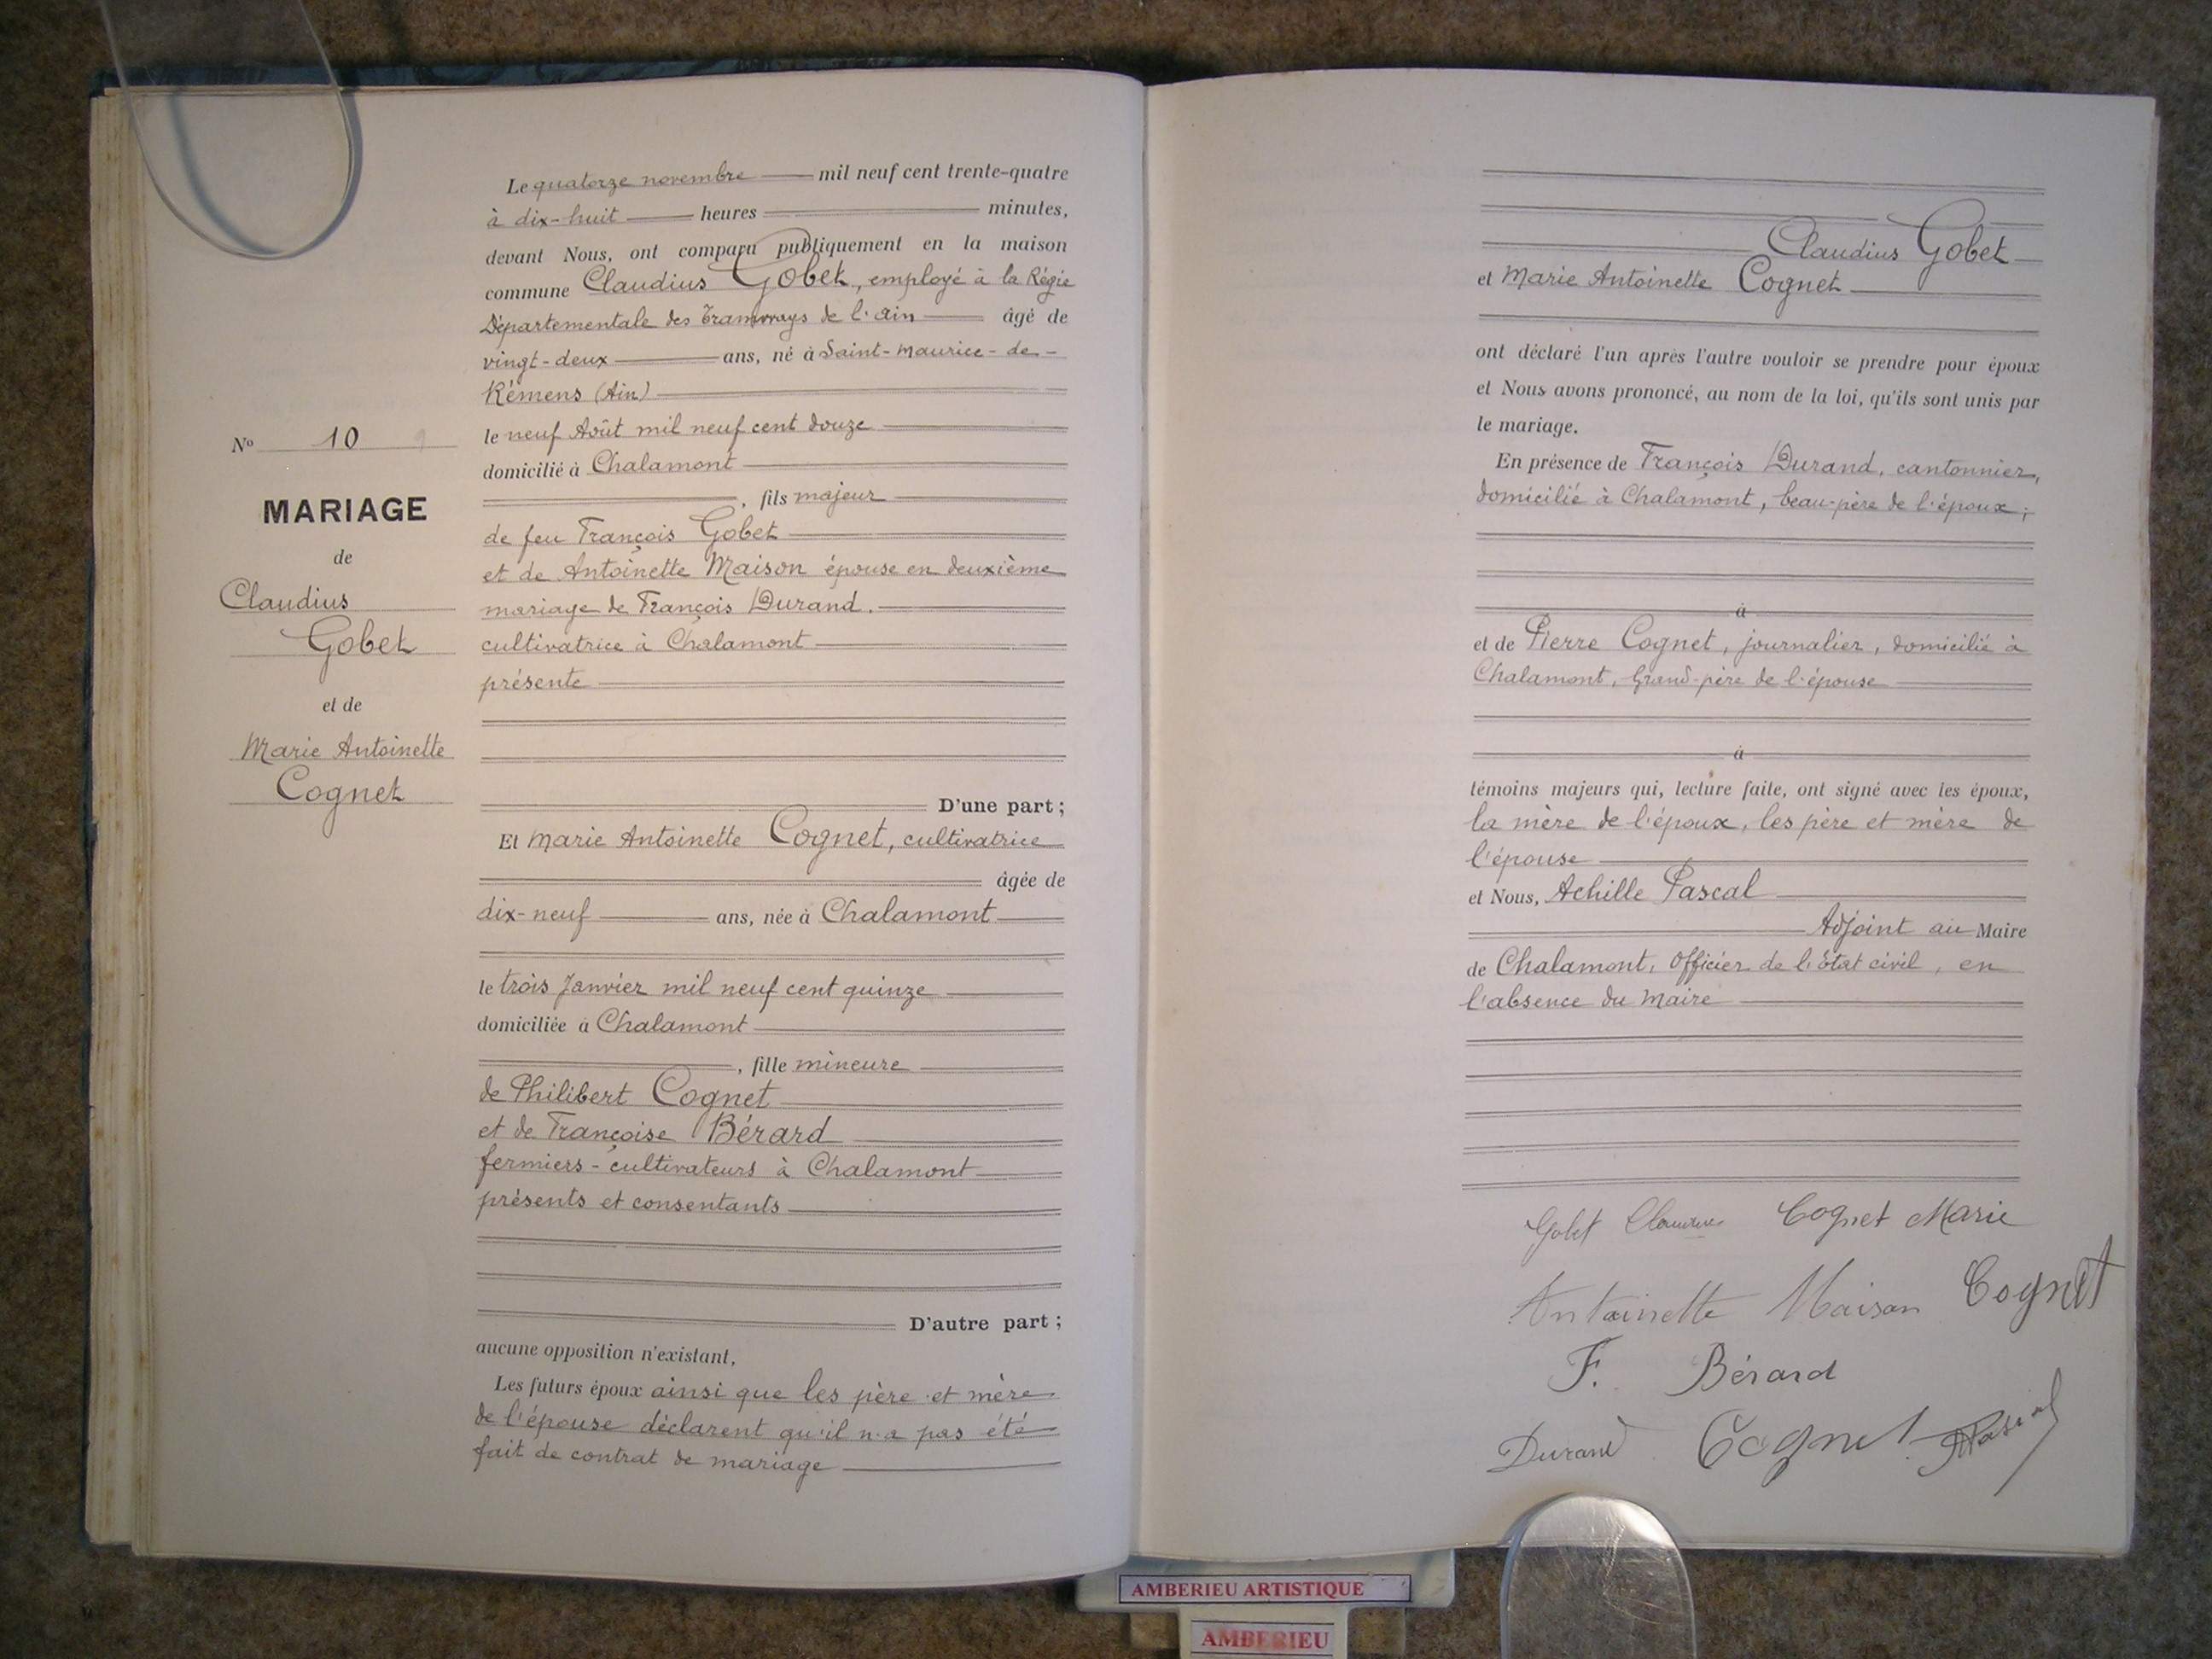 Le quatorze novembre mil neuf cent trente-quatre
à dix-huit heures minutes,
devant Nous, ont comparu publiquement en la maison
commune Claudius Gobet, employé à la Régie
Départementale des Tramways de l'Ain âgé de
vingt-deux ans, né à Saint-Maurice-de-
Rémens (Ain)
le neuf Août mil neuf cent douze
domicilié à Chalamont
, fils majeur
de feu François Gobet
et de Antoinette Maison épouse en deuxième
mariage de François Durand.
cultivatrice à Chalamont
présente
D'une part ;
Et Marie Antoinette Cognet, cultivatrice
âgée de
dix-neuf ans, née à Chalamont
le trois Janvier mil neuf cent quinze
domiciliée à Chalamont
, fille mineure
de Philibert Cognet
et de Françoise Bérard
fermiers-cultivateurs à Chalamont
présents et consentants
D'autre part ;
aucune opposition n'existant,
Les futurs époux ainsi que les père et mère
de l'épouse déclarent qu'il n'a pas été
fait de contrat de mariage
No 10
MARIAGE
de
Claudius
Gobet
et de
Marie Antoinette
Cognet
Claudius Gobet
et Marie Antoinette Cognet
ont déclaré l'un après l'autre vouloir se prendre pour époux
et Nous avons prononcé, au nom de la loi, qu'ils sont unis par
le mariage.
En présence de François Durand, cantonnier,
domicilié à Chalamont, beau-père de l'époux ;
à
et de Pierre Cognet, journalier, domicilié à
Chalamont, Grand-père de l'épouse
à
témoins majeurs qui, lecture faite, ont signé avec les époux,
la mère de l'époux, les père et mère de
l'épouse
et Nous, Achille Pascal
Adjoint au Maire
de Chalamont, Officier de l'état civil, en
l'absence du Maire
Gobet Claudius Cognet Marie
Antoinette Maison Cognet
F. Bérard
Durand Cognet APascal
AMBERIEU ARTISTIQUE
AMBERIEU